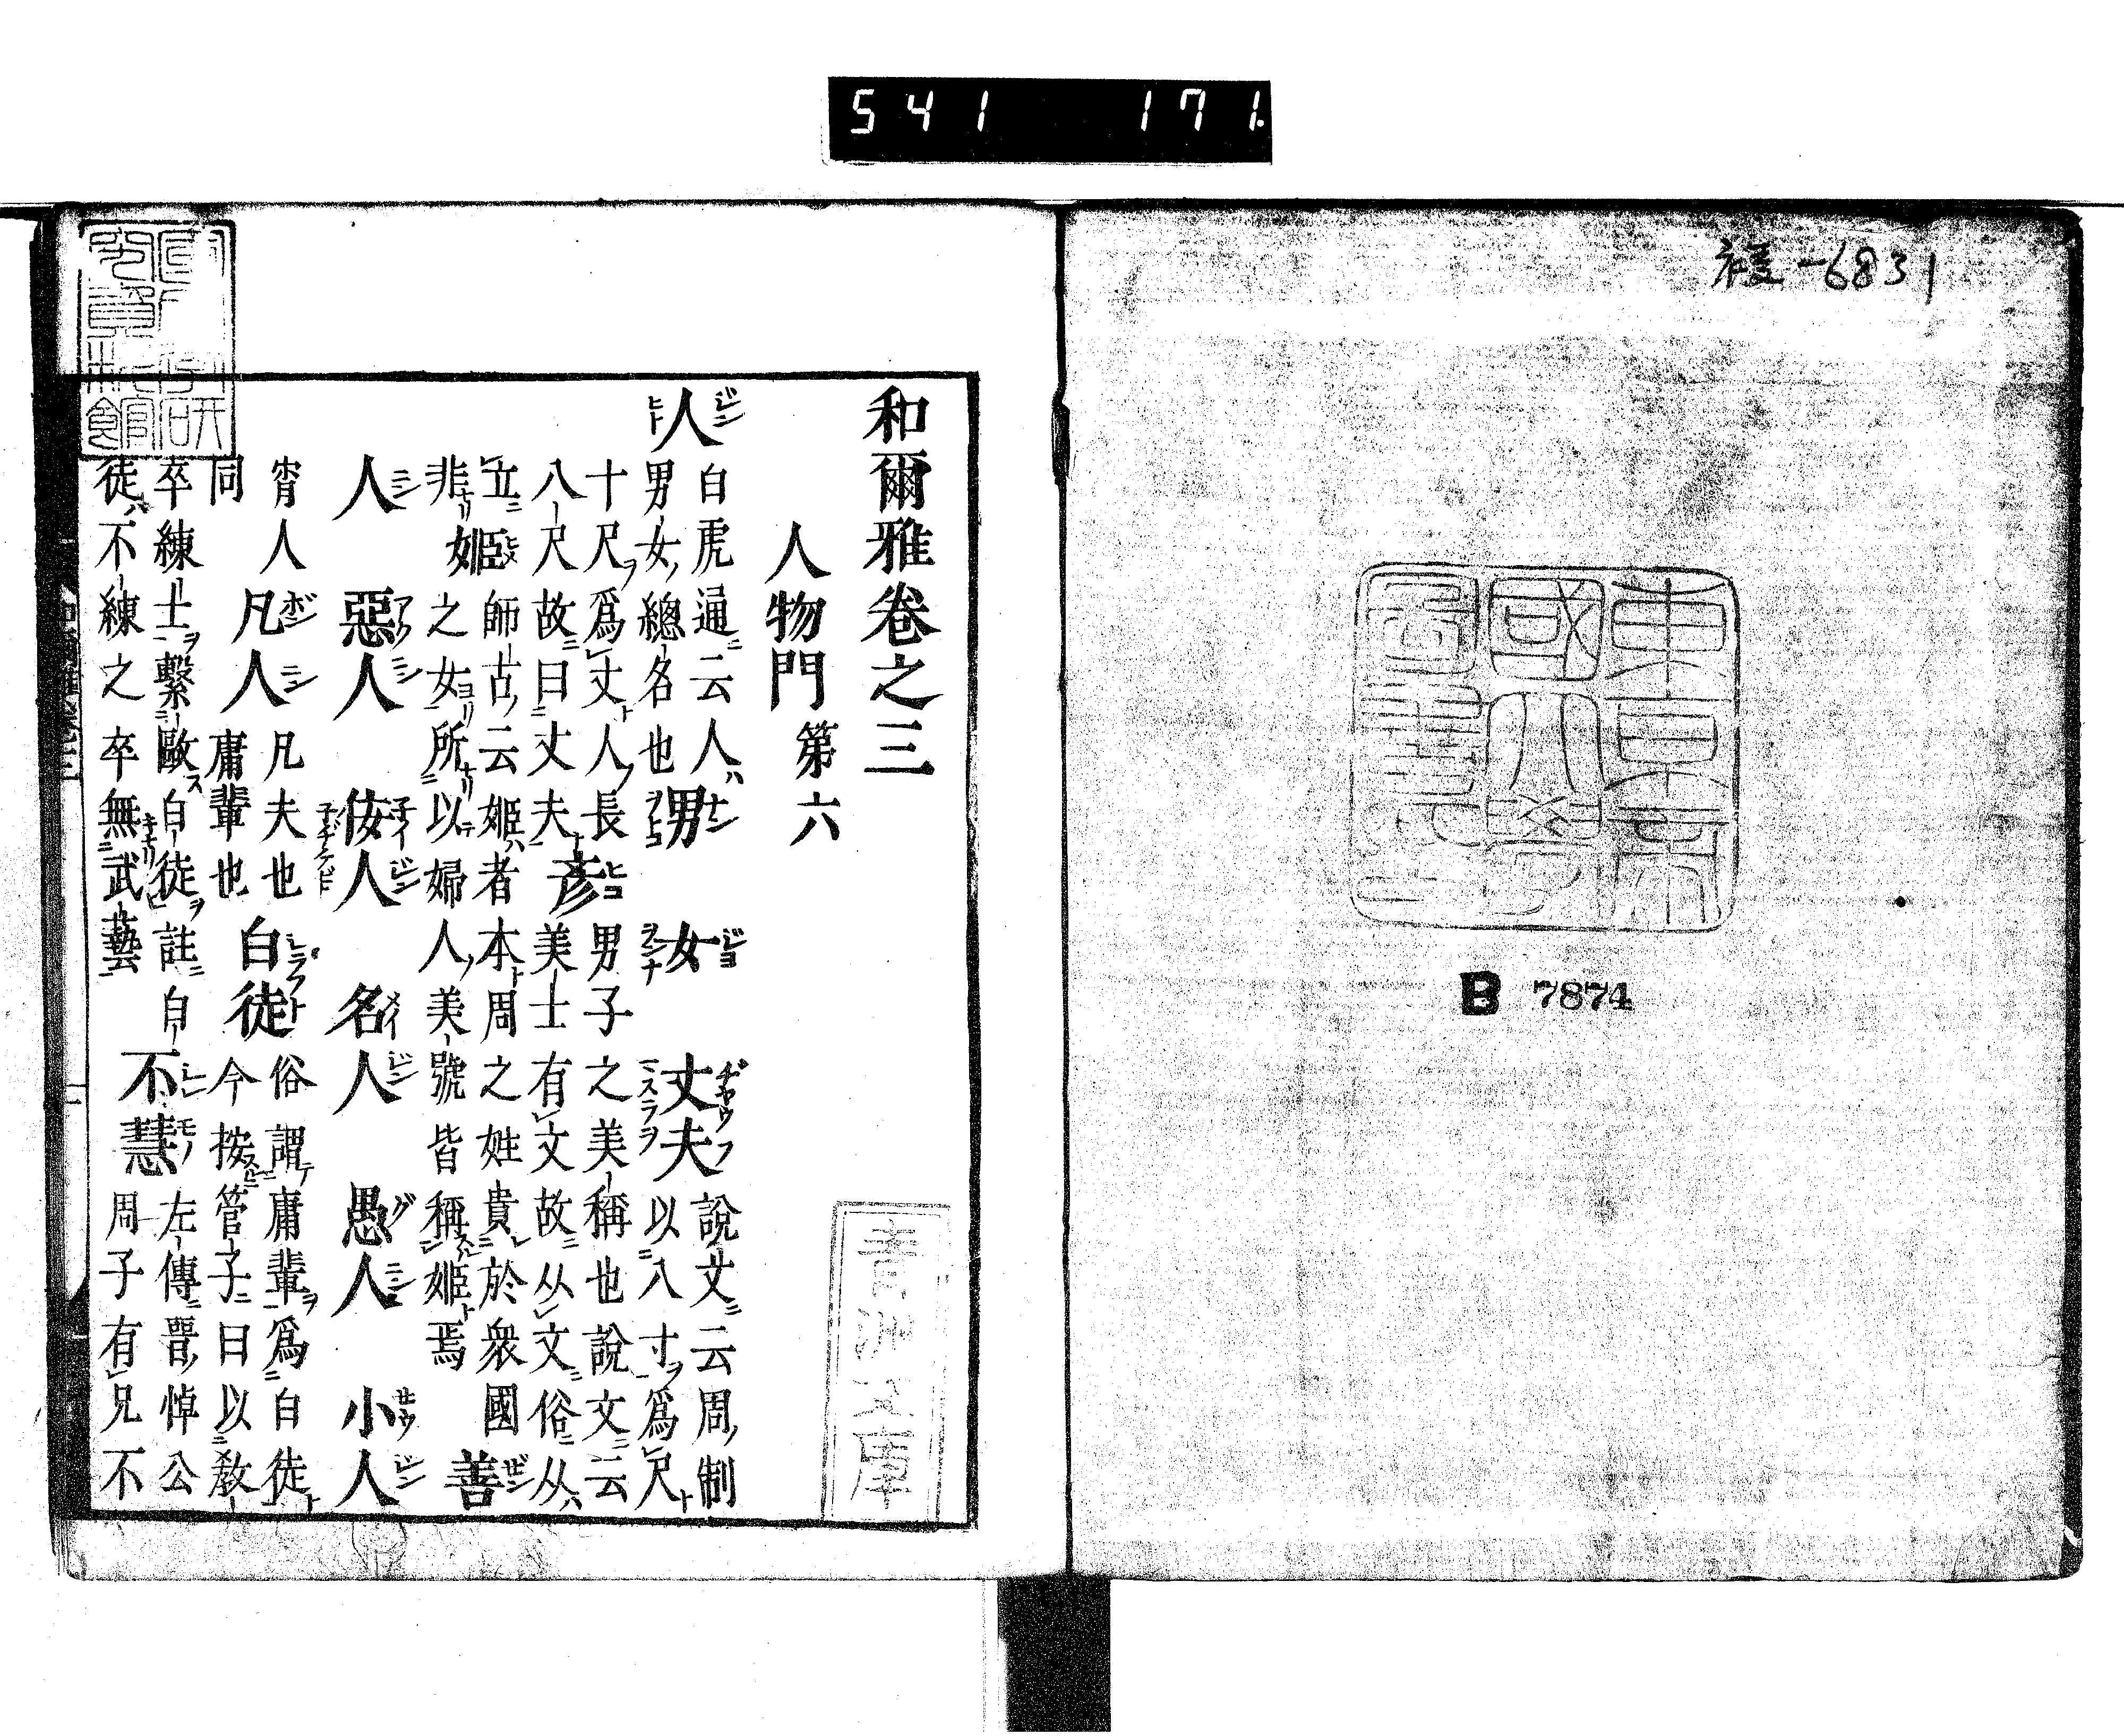 541 171.
複-6831
東京帝
國大學
圖書印
B 7874
和爾雅卷之三
人物門 第六
人 白虎通云人 男女總名也 男 女 丈夫 說文云周制 以八寸爲尺
十尺爲丈人長 八尺故曰丈夫 彥 男子之美稱也說文云 美士有文故从文俗从
立 非 姬 師古云姬者本周之姓貴於衆國 之女所以婦人美號皆稱姬焉 善
人 惡人 佞人 名人 愚人 小人
宵人 同 凡人 凡夫也 庸輩也 白徒 俗謂庸輩爲白徒 今按管子曰以敎
卒練士繫敺白徒註自 徒不練之卒無武藝 不慧 左傳晉悼公 周子有兄不
青洲文庫